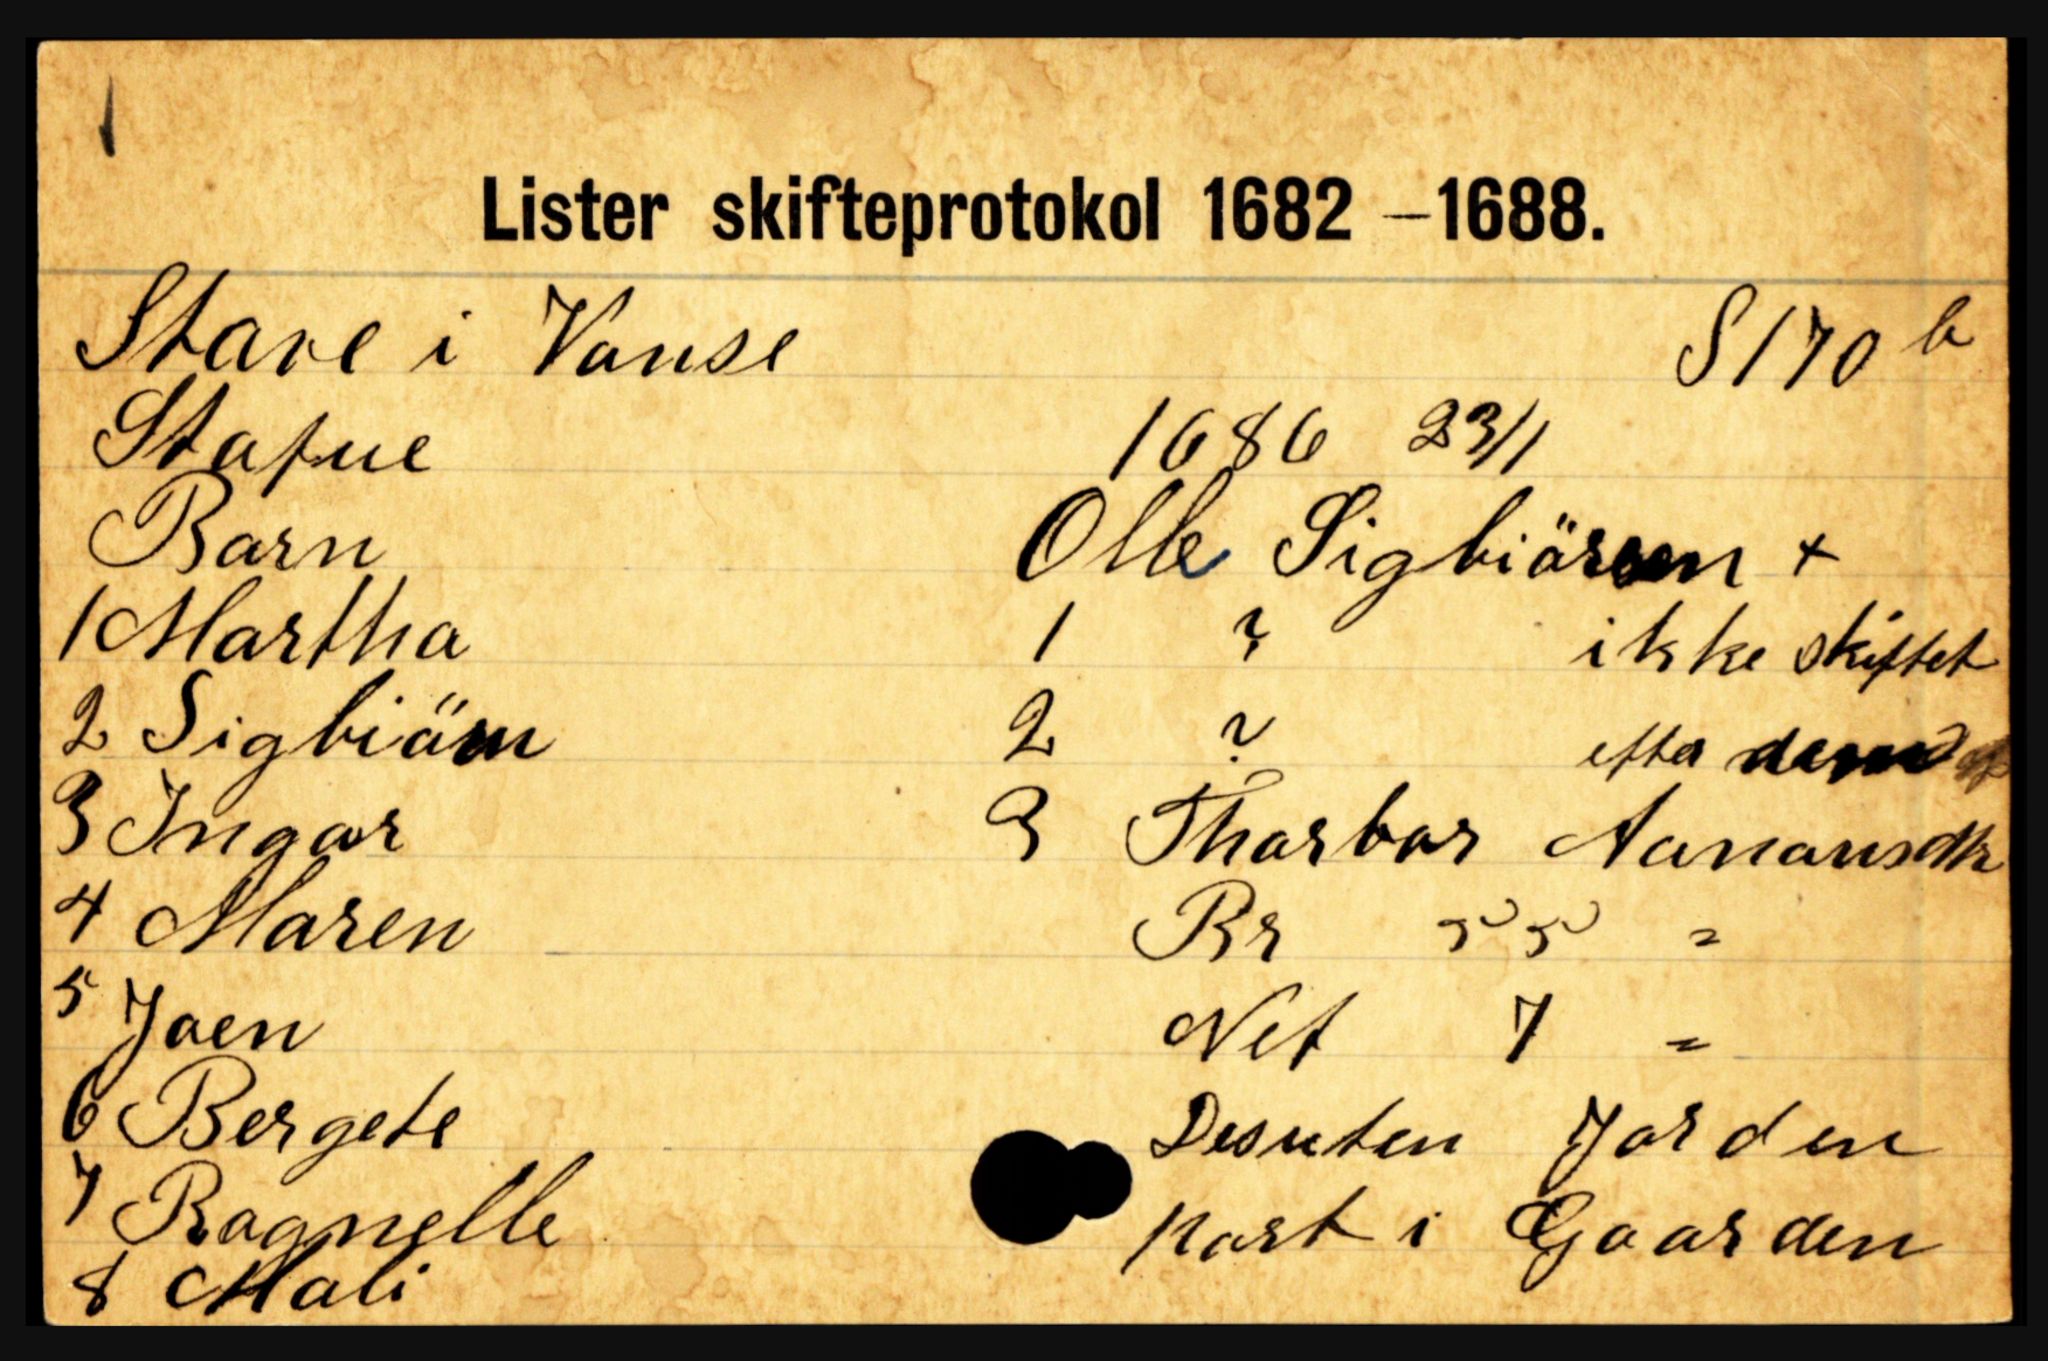 1
Lister skifteprotokol 1682 – 1688.
Stave i Vanse S 170 b
Stafue 1686 23/1
Barn Olle Sigbiörsen +
1 Martha 1 ? ikke skiftet
2 Sigbiörn 2 ? efter
3 Ingar 3 Tharbor Aanansdtr
4 Maren Br 55 "
5 Joen Net 7 "
6 Bergete Desuten Jorden
7 Ragnelle part i Gaarden
8 Mali